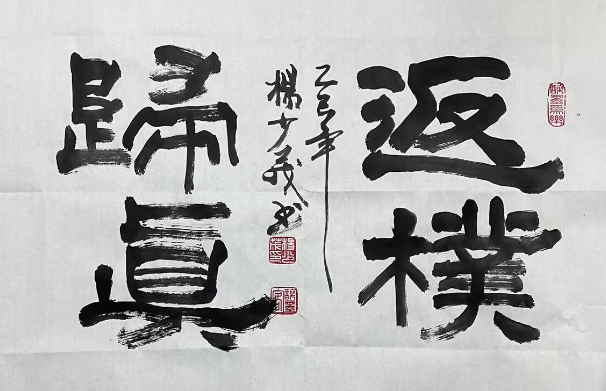 返樸
歸真
乙巳年
楊少義书